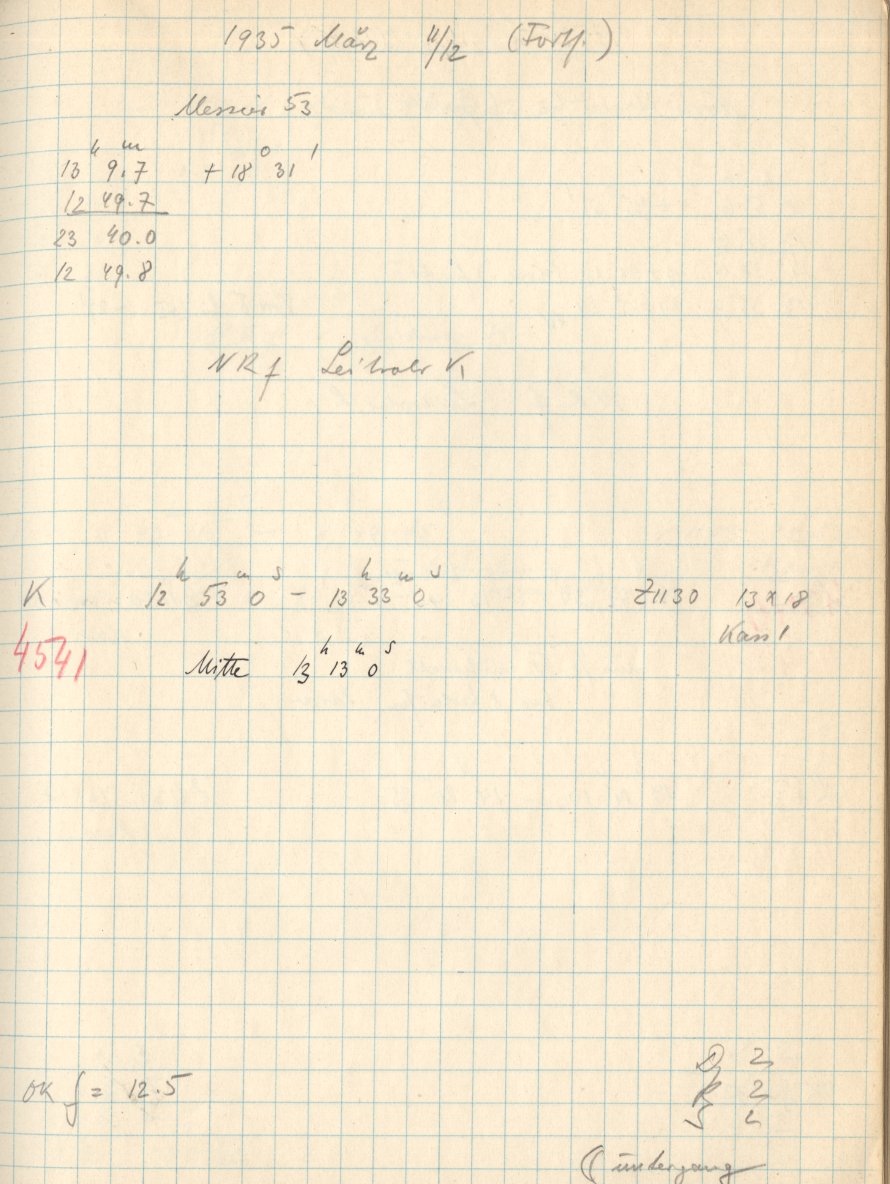 1935 März 11/12 (Forts.)
Messier 53
13h 9.7m + 18° 31'
12 49.7
23 40.0
12 49.8
NRf Leitrohr V1
K 12h 53m 0s – 13h 33m 0s Z1130 13 x 18
Kass 1
4541
Mitte 13h 13m 0s
OK f = 12.5
D 2
R 2
S 2
( untergang